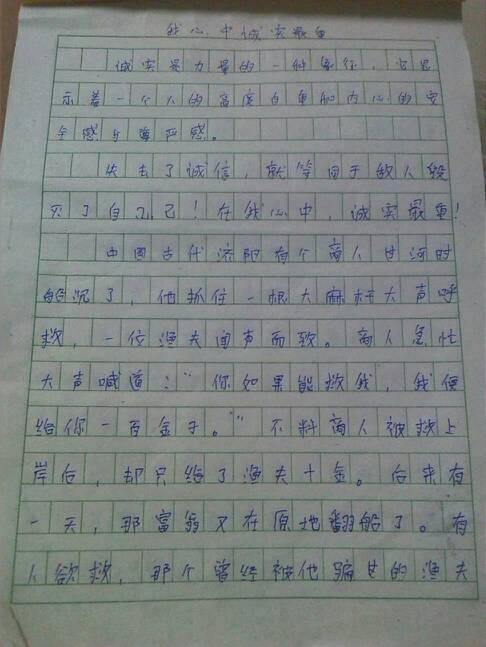 我心中诚实最重
诚实是力量的一种象征，它显
示着一个人的高度自重和内心的安
全感与尊严感。
失去了诚信，就等同于敌人毁
灭了自己！在我心中，诚实最重！
中国古代济阳有个商人过河时
船沉了，他抓住一根大麻杆大声呼
救，一位渔夫闻声而致。商人急忙
大声喊道：“你如果能救我，我便
给你一百金子。”不料商人被救上
岸后，却只给了渔夫十金。后来有
一天，那富翁又在原地翻船了。有
人欲救，那个曾经被他骗过的渔夫